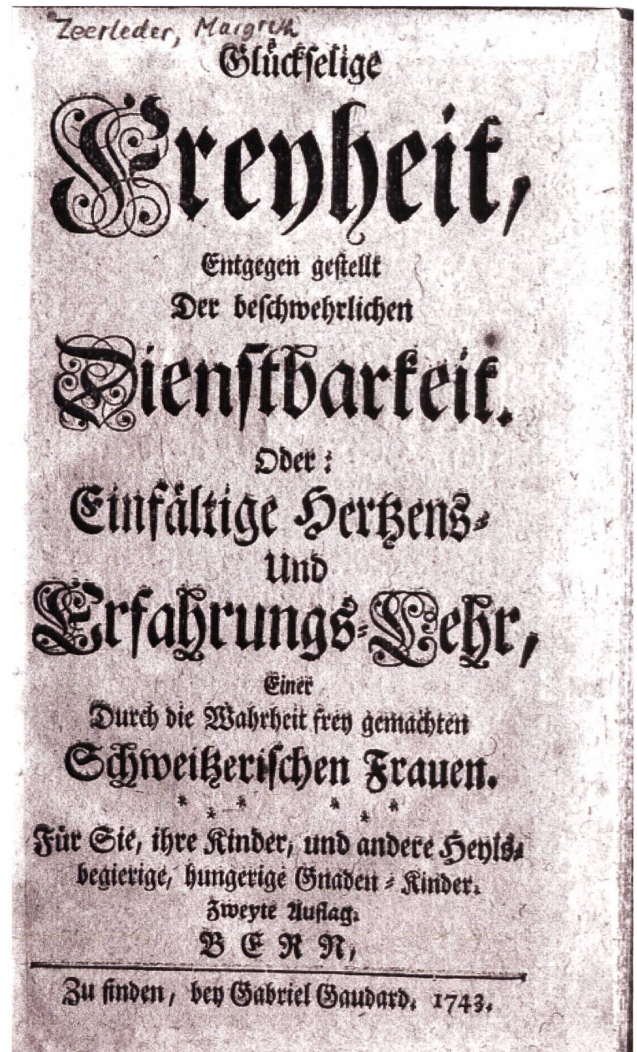 Zeerleder, Margreth
Glückselige
Freyheit,
Entgegen gestellt
Der beschwehrlichen
Dienstbarkeit.
Oder:
Einfältige Hertzens-
Und
Erfahrungs-Lehr,
Einer
Durch die Wahrheit frey gemachten
Schweitzerischen Frauen.
* * * * * *
Für Sie, ihre Kinder, und andere Heyls-
begierige, hungerige Gnaden-Kinder.
Zweyte Auflag.
BERN,
Zu finden, bey Gabriel Gaudard. 1743.